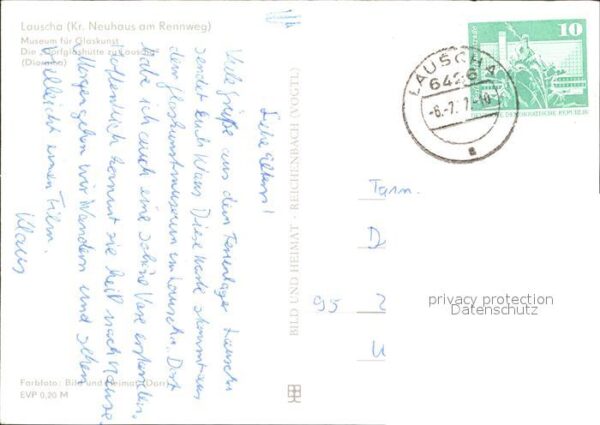 Lauscha (Kr. Neuhaus am Rennweg)
Museum für Glaskunst
Die "Dorfglashütte zu Lauscha"
(Diorama)
Liebe Eltern!
Viele Grüße aus dem Ferienlager Lauscha
sendet Euch Klaus. Diese Karte stammt aus
dem Glaskunstmuseum in Lauscha. Dort
habe ich auch eine schöne Vase erstanden.
Hoffentlich kommt sie heil nach Hause.
Morgen gehn wir Wandern und sehen
vielleicht einen Film.
Klaus
Farbfoto: Bild und Heimat (Dorr)
EVP 0,20 M
BILD UND HEIMAT · REICHENBACH (VOGTL)
LAUSCHA
6426
-6.-7.7
a
10
DEUTSCHE DEMOKRATISCHE REPUBLIK
Fam.
D
95 Z
U
privacy protection
Datenschutz